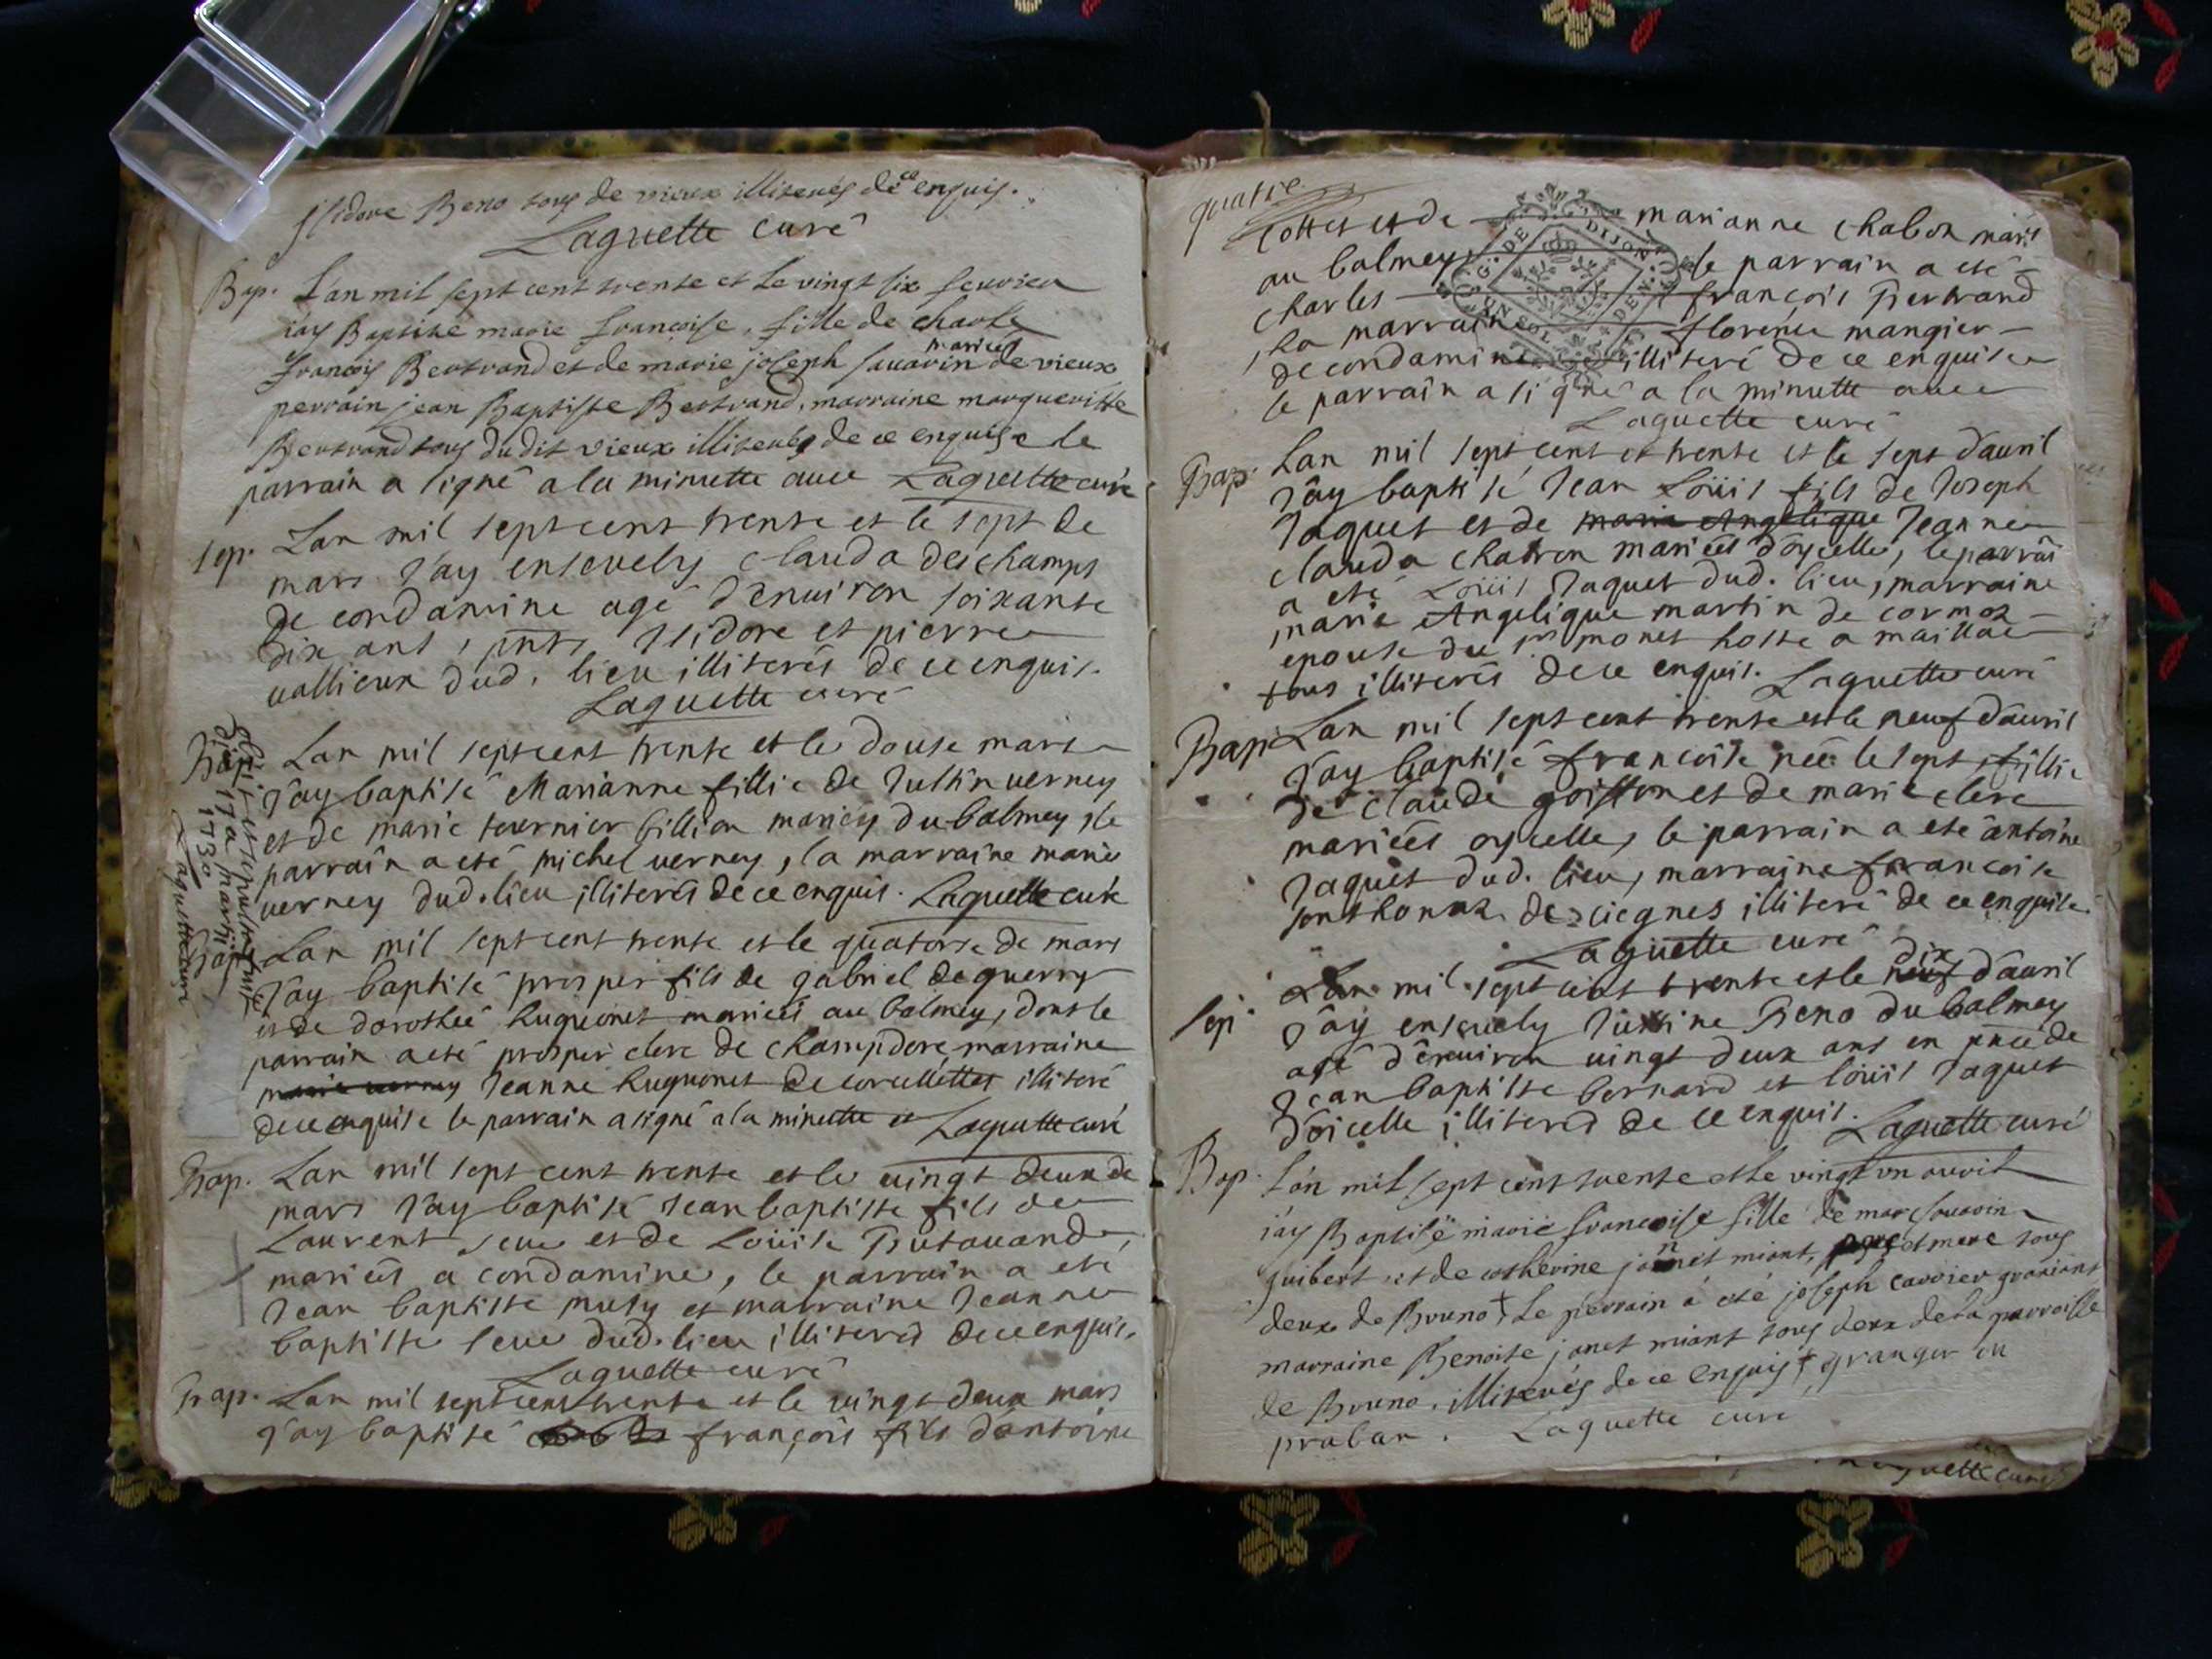 isidore Beno tous de vieux illiterés de ce enquis.
Laguette curé
Bap. L'an mil sept cent trente et le vingt six feuvrier
iay Baptise marie françoise, fille de charle
françois Bertrand et de marie joseph sauarin mariés de vieux
perrain jean Baptiste Bertrand, marraine margueritte
Bertrand tous dudit vieux illiterés de ce enquis le
parrain a signé a la minutte avec Laguette curé
sep. Lan mil sept cent trente et le sept de
mars j'ay ensevely clauda deschamps
de condamine agé d'enuiron soixante
dix ans, pnts isidore et pierre
vallieux dud. lieu illiterés de ce enquis.
Laguette curé
Bap. Lan mil sept cent trente et le douse mars
j'ay baptisé Marianne fillie de Justin verney
et de marie tournier billion mariey du balmey, le
parrain a eté michel verney, la marraine marie
verney dud. lieu illiterés de ce enquis. Laguette curé
obiit et sepulta fuit
die 17a martii
1730
Laguette curé
Bap. Lan mil sept cent trente et le quatorse de mars
j'ay baptisé prosper fils de gabriel deguerry
et de dorotheé huguonet mariés au balmey, dont le
parrain a eté prosper clerc de champdore marraine
marie verney Jeanne huguonet de corcellettes illiteré
de ce enquise le parrain a signé a la minutte et Laguette curé
Bap. Lan mil sept cent trente et le vingt deux de
mars j'ay baptisé Jean baptiste fils de
Laurent seue et de Loüise Butauand,
mariés a condamine, le parrain a eté
Jean baptiste musy et marraine Jeanne
baptiste seue dud. lieu illiterés de ce enquis.
Laguette curé
Bap. Lan mil sept cent trente et le vingt deux mars
j'ay baptisé françois fils d'antoine
quatre
cottet et de marianne chabon mariés
au balmey, le parrain a eté
charles françois Bertrand
la marraine florence mangier
de condamine illiteré de ce enquise
le parrain a signé a la minutte avec
Laguette curé
Bap. Lan mil sept cent et trente et le sept d'auril
j'ay baptisé Jean Loüis fils de Joseph
Jaquet et de marie Angelique Jeanne
clauda chatron mariés d'oycelle, le parrain
a eté Loüis Jaquet dud. lieu, marraine
marie Angelique martin de cormoz
epouse du sr monet hoste a maillac
tous illiterés de ce enquis. Laguette curé
Bap. Lan mil sept cent trente et le neuf d'auril
j'ay baptisé françoise neé le sept, fillie
de claude goiffon et de marie clerc
mariées oycelle, le parrain a eté antoine
Jaquet dud. lieu, marraine francoise
de ciegnes illiteré de ce enquise.
Laguette curé
sep. Lan mil sept cent trente et le neuf dix d'auril
j'ay ensevely Beno du balmey
agé d'enuiron vingt deux ans en pnce de
Jean baptiste bernard et loüis Jaquet
d'oicelle illiterés de ce enquis. Laguette curé
Bap. L'an mil sept cent trente et le vingt un auril
iay Baptisé marie francoise fille de marc sauarin
guibert et de catherine jannet miant, pere et mere tous
deux de Bruno + Le perrain a eté joseph carrier
marraine Benoite janet miant tous deux de la parroisse
de Bruno. illiterés de ce enquis + granger en
praban. Laguette curé
Laguette curé